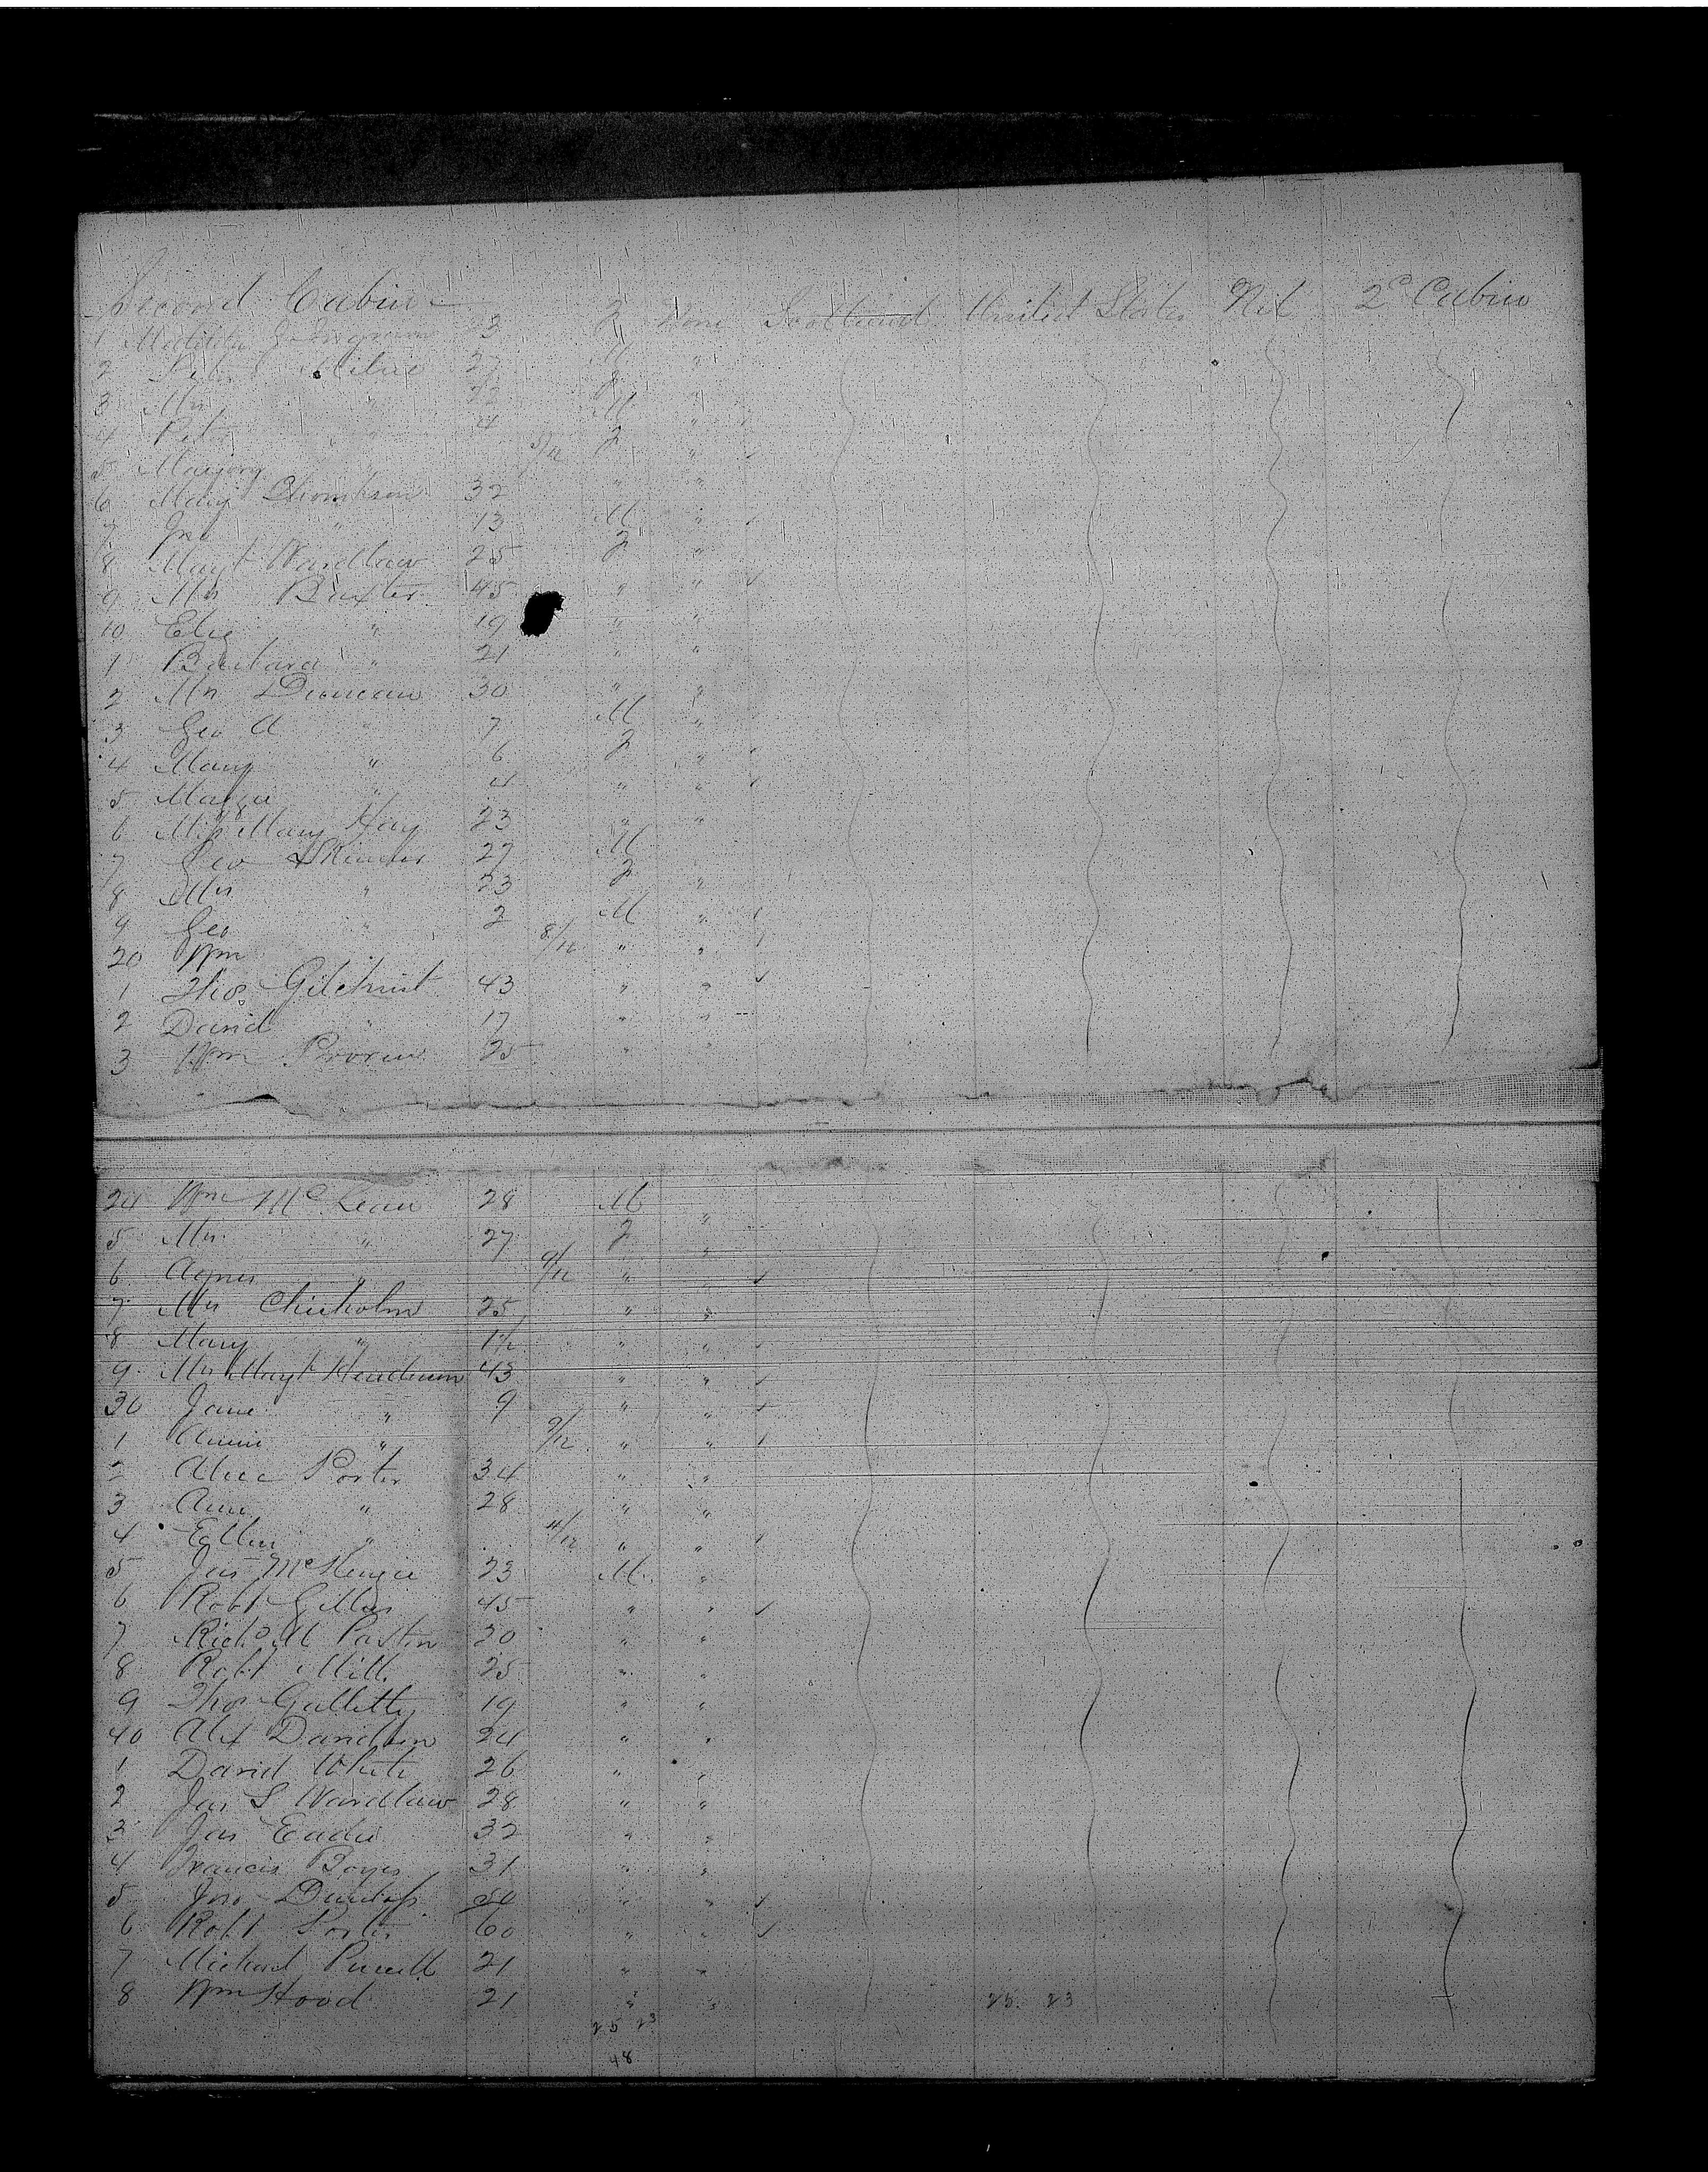 Second Cabin
1 Matilda 23 F None Scotland United States Nil 2° Cabin
2 Peter Milne 27 M "
3 Mrs " 22 " "
4 Peter " 4 M "
5 Marjory " 9/12 F "
6 Mary Thomson 32 " "
7 Jno " 13 M "
8 Magt Wardlaw 25 F "
9 Mrs Baxter 45 " "
10 Eliz " 19 " "
1 Barbara " 21 " "
2 Mrs Duncan 30 " "
3 Geo A " 7 M "
4 Mary " 6 F "
5 Maggie " 4 " "
6 Miss Mary Hay 23 " "
7 Geo Skinner 27 M
8 Mrs " 23 F "
9 Geo " 2 M "
20 Wm 8/12 " "
1 Thos Gilchrist 43 " "
2 David " 17 " "
3 Wm 25 " "
24 Wm McLean 28 M "
5 Mrs " 27 F "
6 Agnes " 9/12 " "
7 Mrs Chisholm 25 " "
8 Mary " 1½ " "
9 Mrs Magt Henderson 43 " "
30 Jane " 9 " "
1 Annie " 9/12 " "
2 Alice Porter 34 " "
3 Ann " 28 " "
4 Ellen " 11/12 " "
5 Jas McKenzie 23 M "
6 Robt Gillies 45 " "
7 Richd M 20 " "
8 Robt Mill 25 " "
9 Thos Galletly 19 " "
40 Alex Davidson 24 " "
1 David White 26 " "
2 Jas S Wardlaw 28 " "
3 Jas Eadie 32 " "
4 Francis Boyes 31 " "
5 Jno Dunlop 50 " "
6 Robt Porter 60 " "
7 Michael Purcell 21 " "
8 Wm Hood 21 " " 25 23
25 23
48